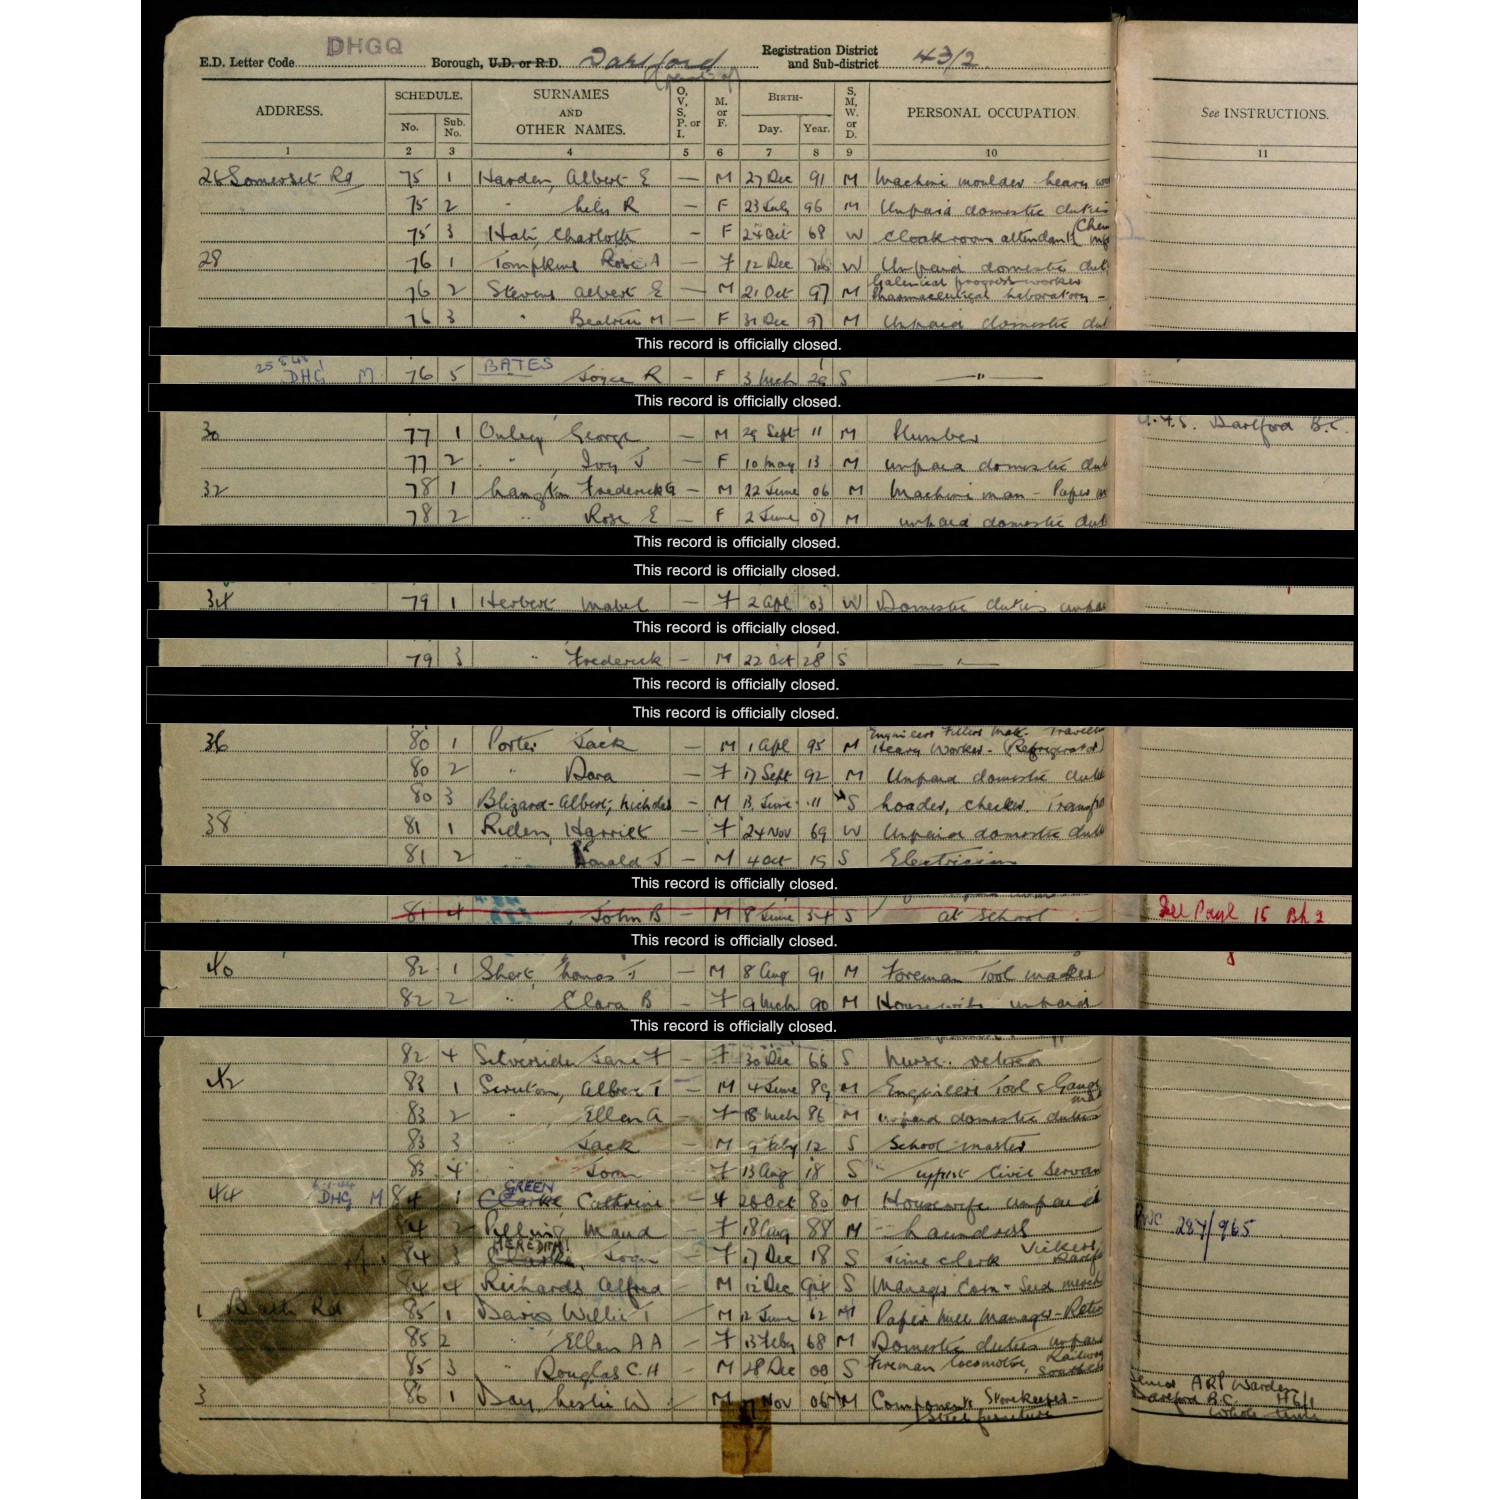 DHGQ
E.D. Letter Code Borough, U.D. or R.D. Dartford (part of) Registration District and Sub-district 43/2
ADDRESS. SCHEDULE. No. Sub. No. SURNAMES AND OTHER NAMES. O, V, S, P. or I. M. or F. BIRTH- Day. Year. S, M, W. or D. PERSONAL OCCUPATION. See INSTRUCTIONS.
1 2 3 4 5 6 7 8 9 10 11
26 Somerset Rd 75 1 Harden, Albert E — M 27 Dec 91 M Machine moulder heavy
75 2 " R — F 23 July 96 M Unpaid domestic duties
75 3 Charlotte — F 24 Oct 68 W Cloakroom attendant
28 76 1 Tompkins Rose A — F 12 Dec W Unpaid domestic dut
76 2 Stevens Albert E — M 21 Oct 97 M Galenical progress worker Pharmaceutical Laboratory -
76 3 " Beatrice M — F 31 Dec 97 M Unpaid domestic dut
This record is officially closed.
DHG M 76 5 BATES Joyce R — F 3 Mch 29 S — " —
This record is officially closed.
30 77 1 George — M 29 Sept 11 M Plumber A.F.S. Dartford B.C.
77 2 " Ivy J — F 10 May 13 M unpaid domestic dut
32 78 1 Langton Frederick G — M 22 June 06 M Machine man - Paper
78 2 " Rose E — F 2 June 07 M unpaid domestic dut
This record is officially closed.
This record is officially closed.
34 79 1 Herbert Mabel — F 2 Apl 03 W Domestic duties unpai
This record is officially closed.
79 3 " Frederick — M 22 Oct 28 S — " —
This record is officially closed.
This record is officially closed.
36 80 1 Porter Jack — M 1 Apl 95 M Engineers Fitters Mate. Heavy Worker - (Refrigerator)
80 2 " Dora — F 17 Sept 92 M Unpaid domestic duti
80 3 Blizard - Albert, Nicholas — M 13 June 11 S Loader, checker
38 81 1 Riden, Harriet — F 24 Nov 69 W Unpaid domestic duti
81 2 " Ronald J — M 4 Oct 19 S Electrician
This record is officially closed.
81 4 ", John B — M 8 June 34 S at school See Page 15
This record is officially closed.
40 82 1 Short, Thomas J — M 8 Aug 91 M Foreman Tool maker
82 2 " Clara B — F 9 Mch 90 M Housewife unpaid
This record is officially closed.
82 4 Silverside Jane F — F 30 Dec 66 S Nurse. retired
42 83 1 Scruton, Albert T — M 4 June 89 M Engineers Tool & Gauge
83 2 ", Ellen A — F 18 Mch 86 M unpaid domestic duties
83 3 " Jack — M 9 Feby 12 S School master
83 4 " Joan F 13 Aug 18 S Typist Civil Servan
44 DHG M 84 1 Clarke GREEN Cathrine — F 28 Oct 80 M Housewife unpaid
84 2 Maud — F 18 Aug 88 M Laundress RWC 287/965
84 3 Clarke MEREDITH, Joan — F 17 Dec 18 S Time clerk Vickers
84 4 Richards Alfred M 12 Dec S Manager Corn - Seed merch
1 Bath Rd 85 1 Davis Willie T M 12 June 62 M Paper mill Manager - Retir
85 2 " Ellen A A — F 13 Feby 68 M Domestic duties unpaid
85 3 " Douglas C.H — M 28 Dec 00 S Fireman locomotive, Railway
3 86 1 Day Leslie W M Nov 06 M Components Storekeeper - Steel furniture Senior ARP Warden Dartford B.C. whole time